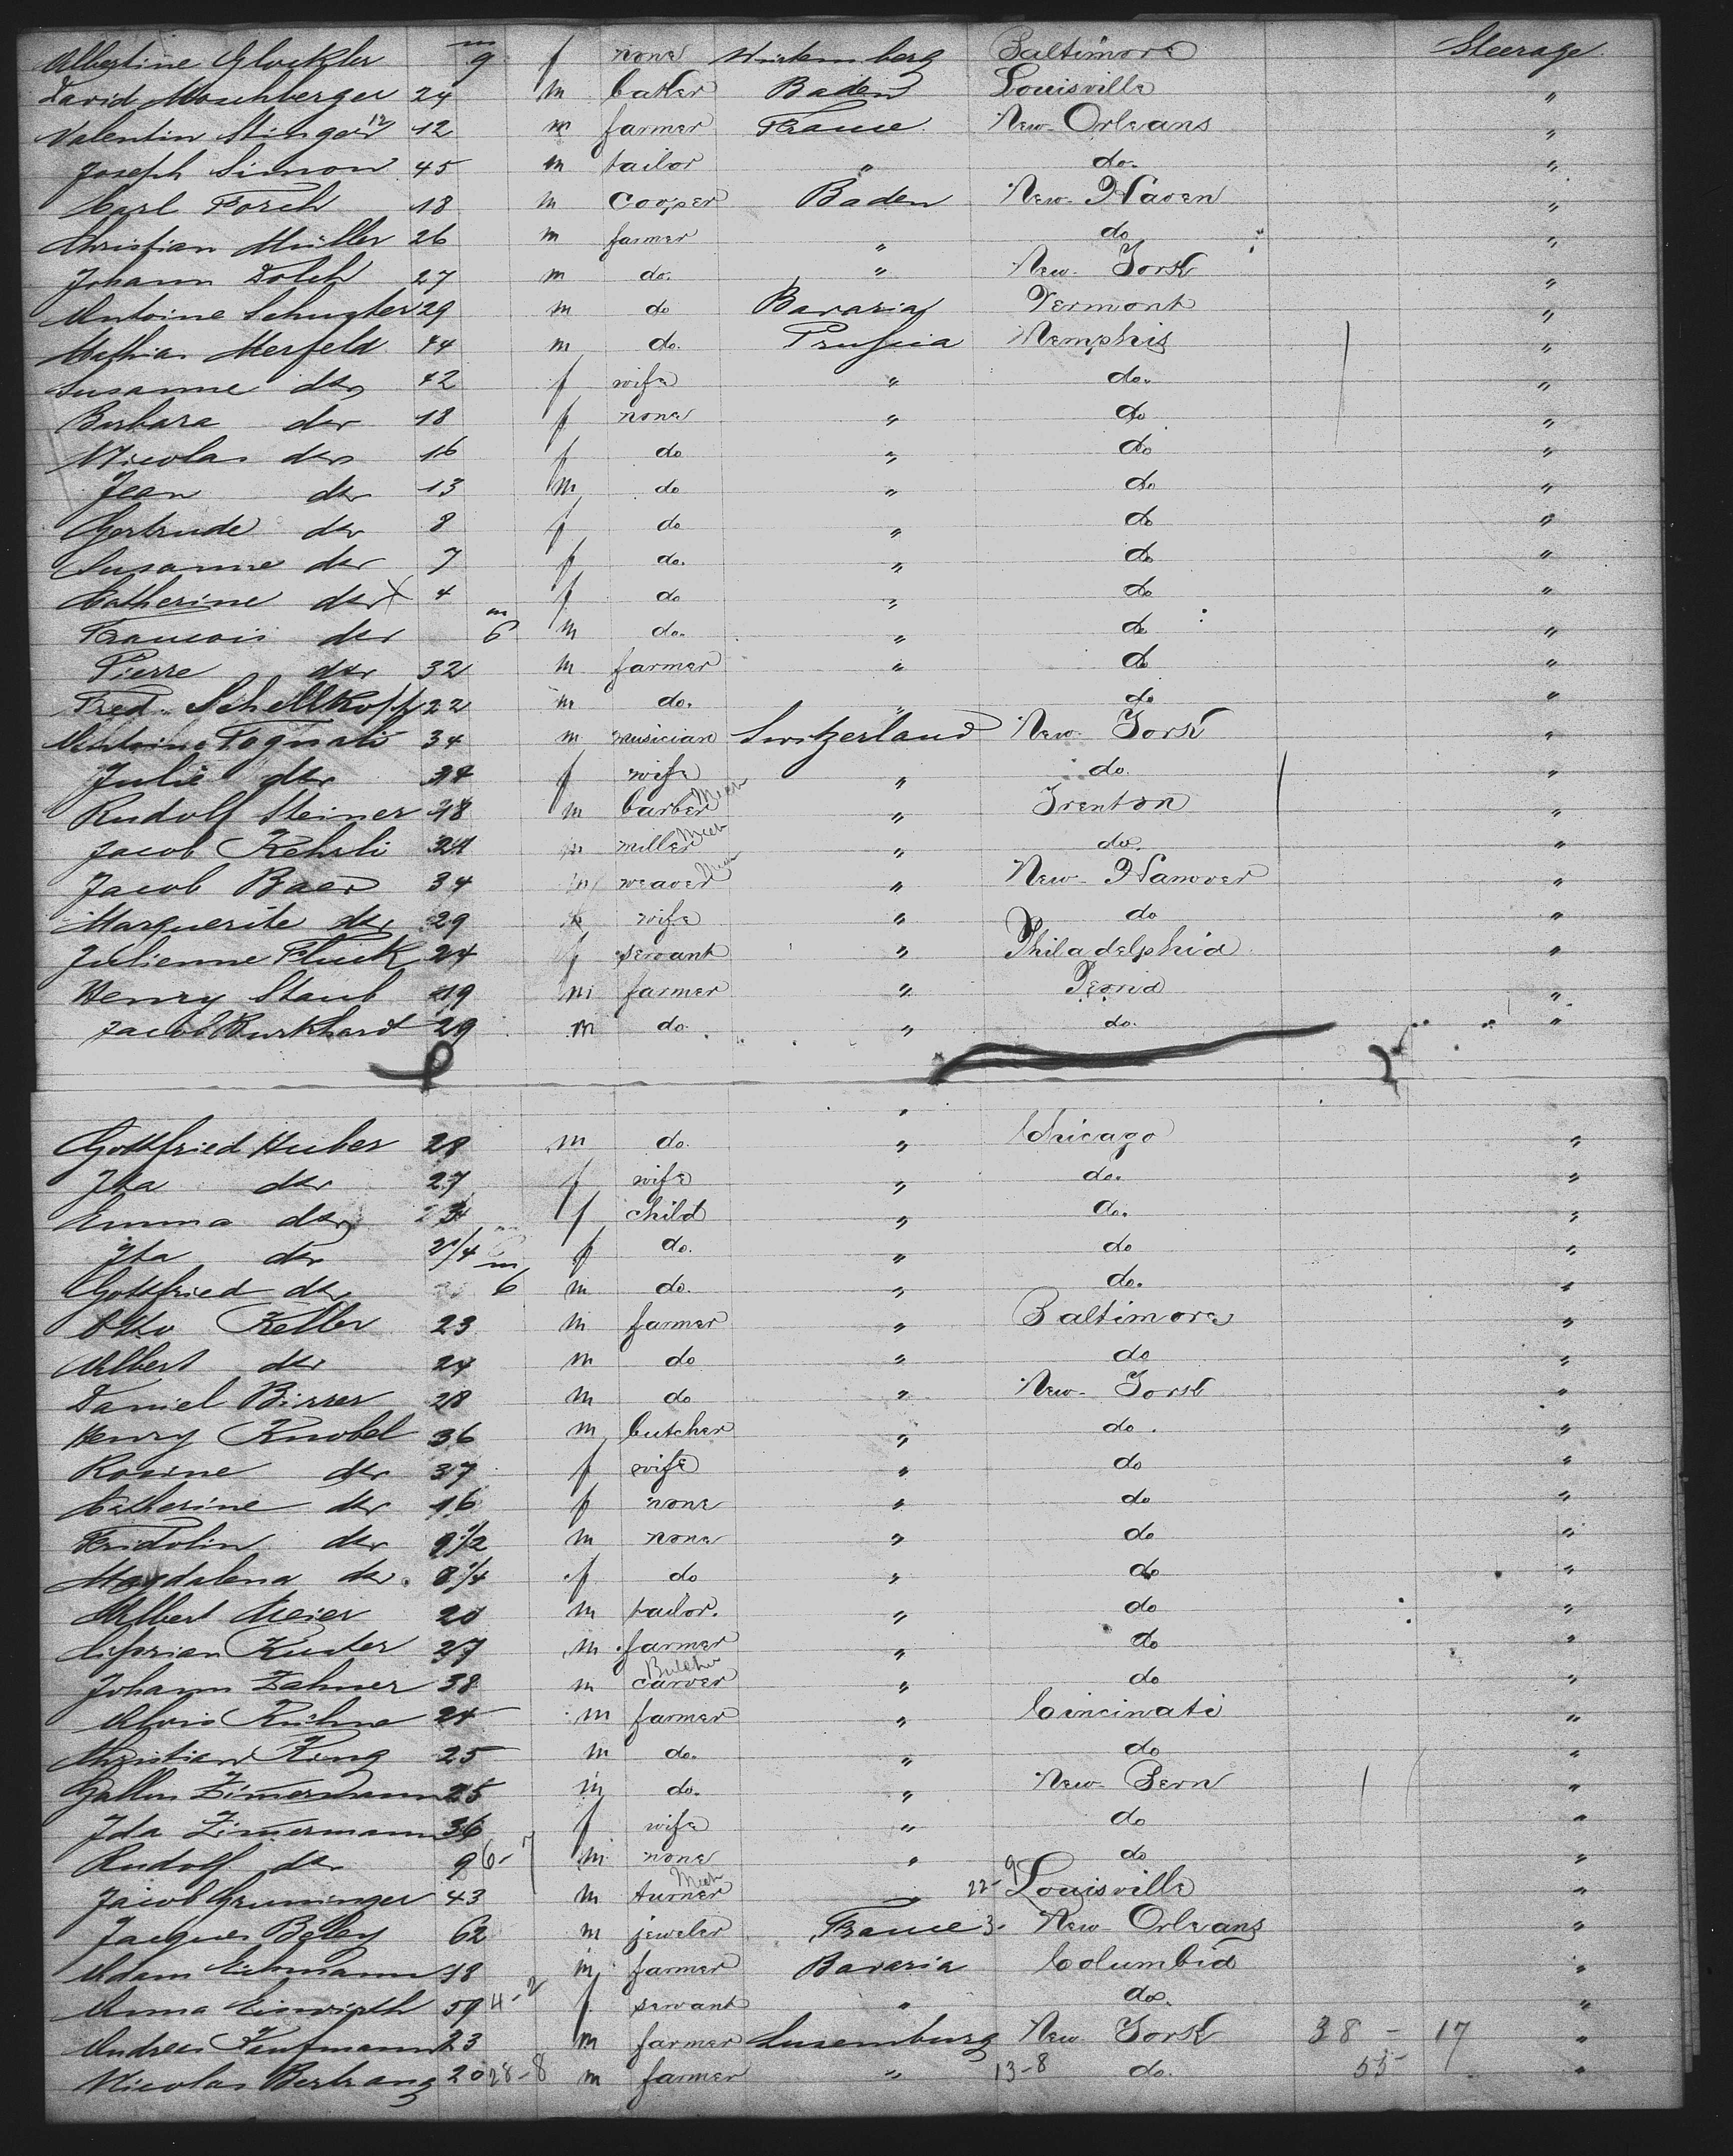 Albertine Glockler m 9 f none Würtemberg Baltimore Steerage
David Moschberger 24 m Baden Louisville "
Valentin Stinger 12 12 m farmer France New-Orleans "
Joseph Simon 45 m tailor " do. "
Carl Forch 18 m cooper Baden New-Haven "
Christian Müller 26 m farmer " do "
Johann Dolch 27 m do. " New-York "
Antoine Schuster 29 m do Bavaria Vermont "
Mathias Merfeld 44 m do. Prussia Memphis "
Susanne der 42 f wife " do. "
Barbara der 18 f none " do "
Nicolas der 16 f do " do "
Jean der 13 m do " do "
Gertrude der 8 f do " do "
Susanne der 7 f do. " do "
Catherine der 4 f do " do "
Francois der m 6 m do. " do "
Pierre der 32 m farmer " do "
Fred. Schellkopf 22 m do. " do "
Antoine Tognali 34 m musician Switzerland New-York "
Julie der 34 f wife " do. "
Rudolf Steiner 18 m barber " Trenton "
Jacob Kehrli 24 m miller " do. "
Jacob Baer 34 m weaver " New-Hanover "
Marguerite der 29 wife " do "
Julienne Fluck 24 f servant " Philadelphia "
Henry Staub 19 m farmer " Peoria "
Jacob Burkhard 29 m do. " do. "
Gottfried Huber 28 m do. " Chicago "
Ita der 27 f wife " do. "
Emma der f child " do. "
Ita der 2 1/4 f do. " do "
Gottfried der m 6 m do. " do. "
Otto Keller 23 m farmer " Baltimore "
Albert der 24 m do " do "
Daniel Birrer 28 m do " New-York "
Henry Knobel 36 m butcher " do. "
Rosine der 37 f wife " do "
Catherine der 16 f none " do "
Fridolin der 9 1/2 m none " do "
Magdalena der. 8 1/4 f do " do "
Albert Meier 20 m tailor. " do "
Ciprian Kuster 27 m farmer " do "
Johann Zehner 38 m carver Butcher " do "
Alois Kühne 24 m farmer " Cincinati "
Christian King 25 m do. " do "
Gallus Zimermann 25 m do. " New-Bern "
Ida Zimermann 36 f wife " do "
Rudolf der 9 6-7 m none " do "
Jacob Gruninger 43 m turner " 22-9 Louisville "
Jacques Beley 62 m jeweler France 3. New-Orleans "
Adam Eichmann 18 m farmer Bavaria Columbia "
Anna Einwirth 59 4-2 f servant " do. "
Andreas Kaufmann 23 m farmer Luxemburg New York 38 - 17 "
Nicolas Bertrang 20 28-8 m farmer " 13-8 do. 55 "